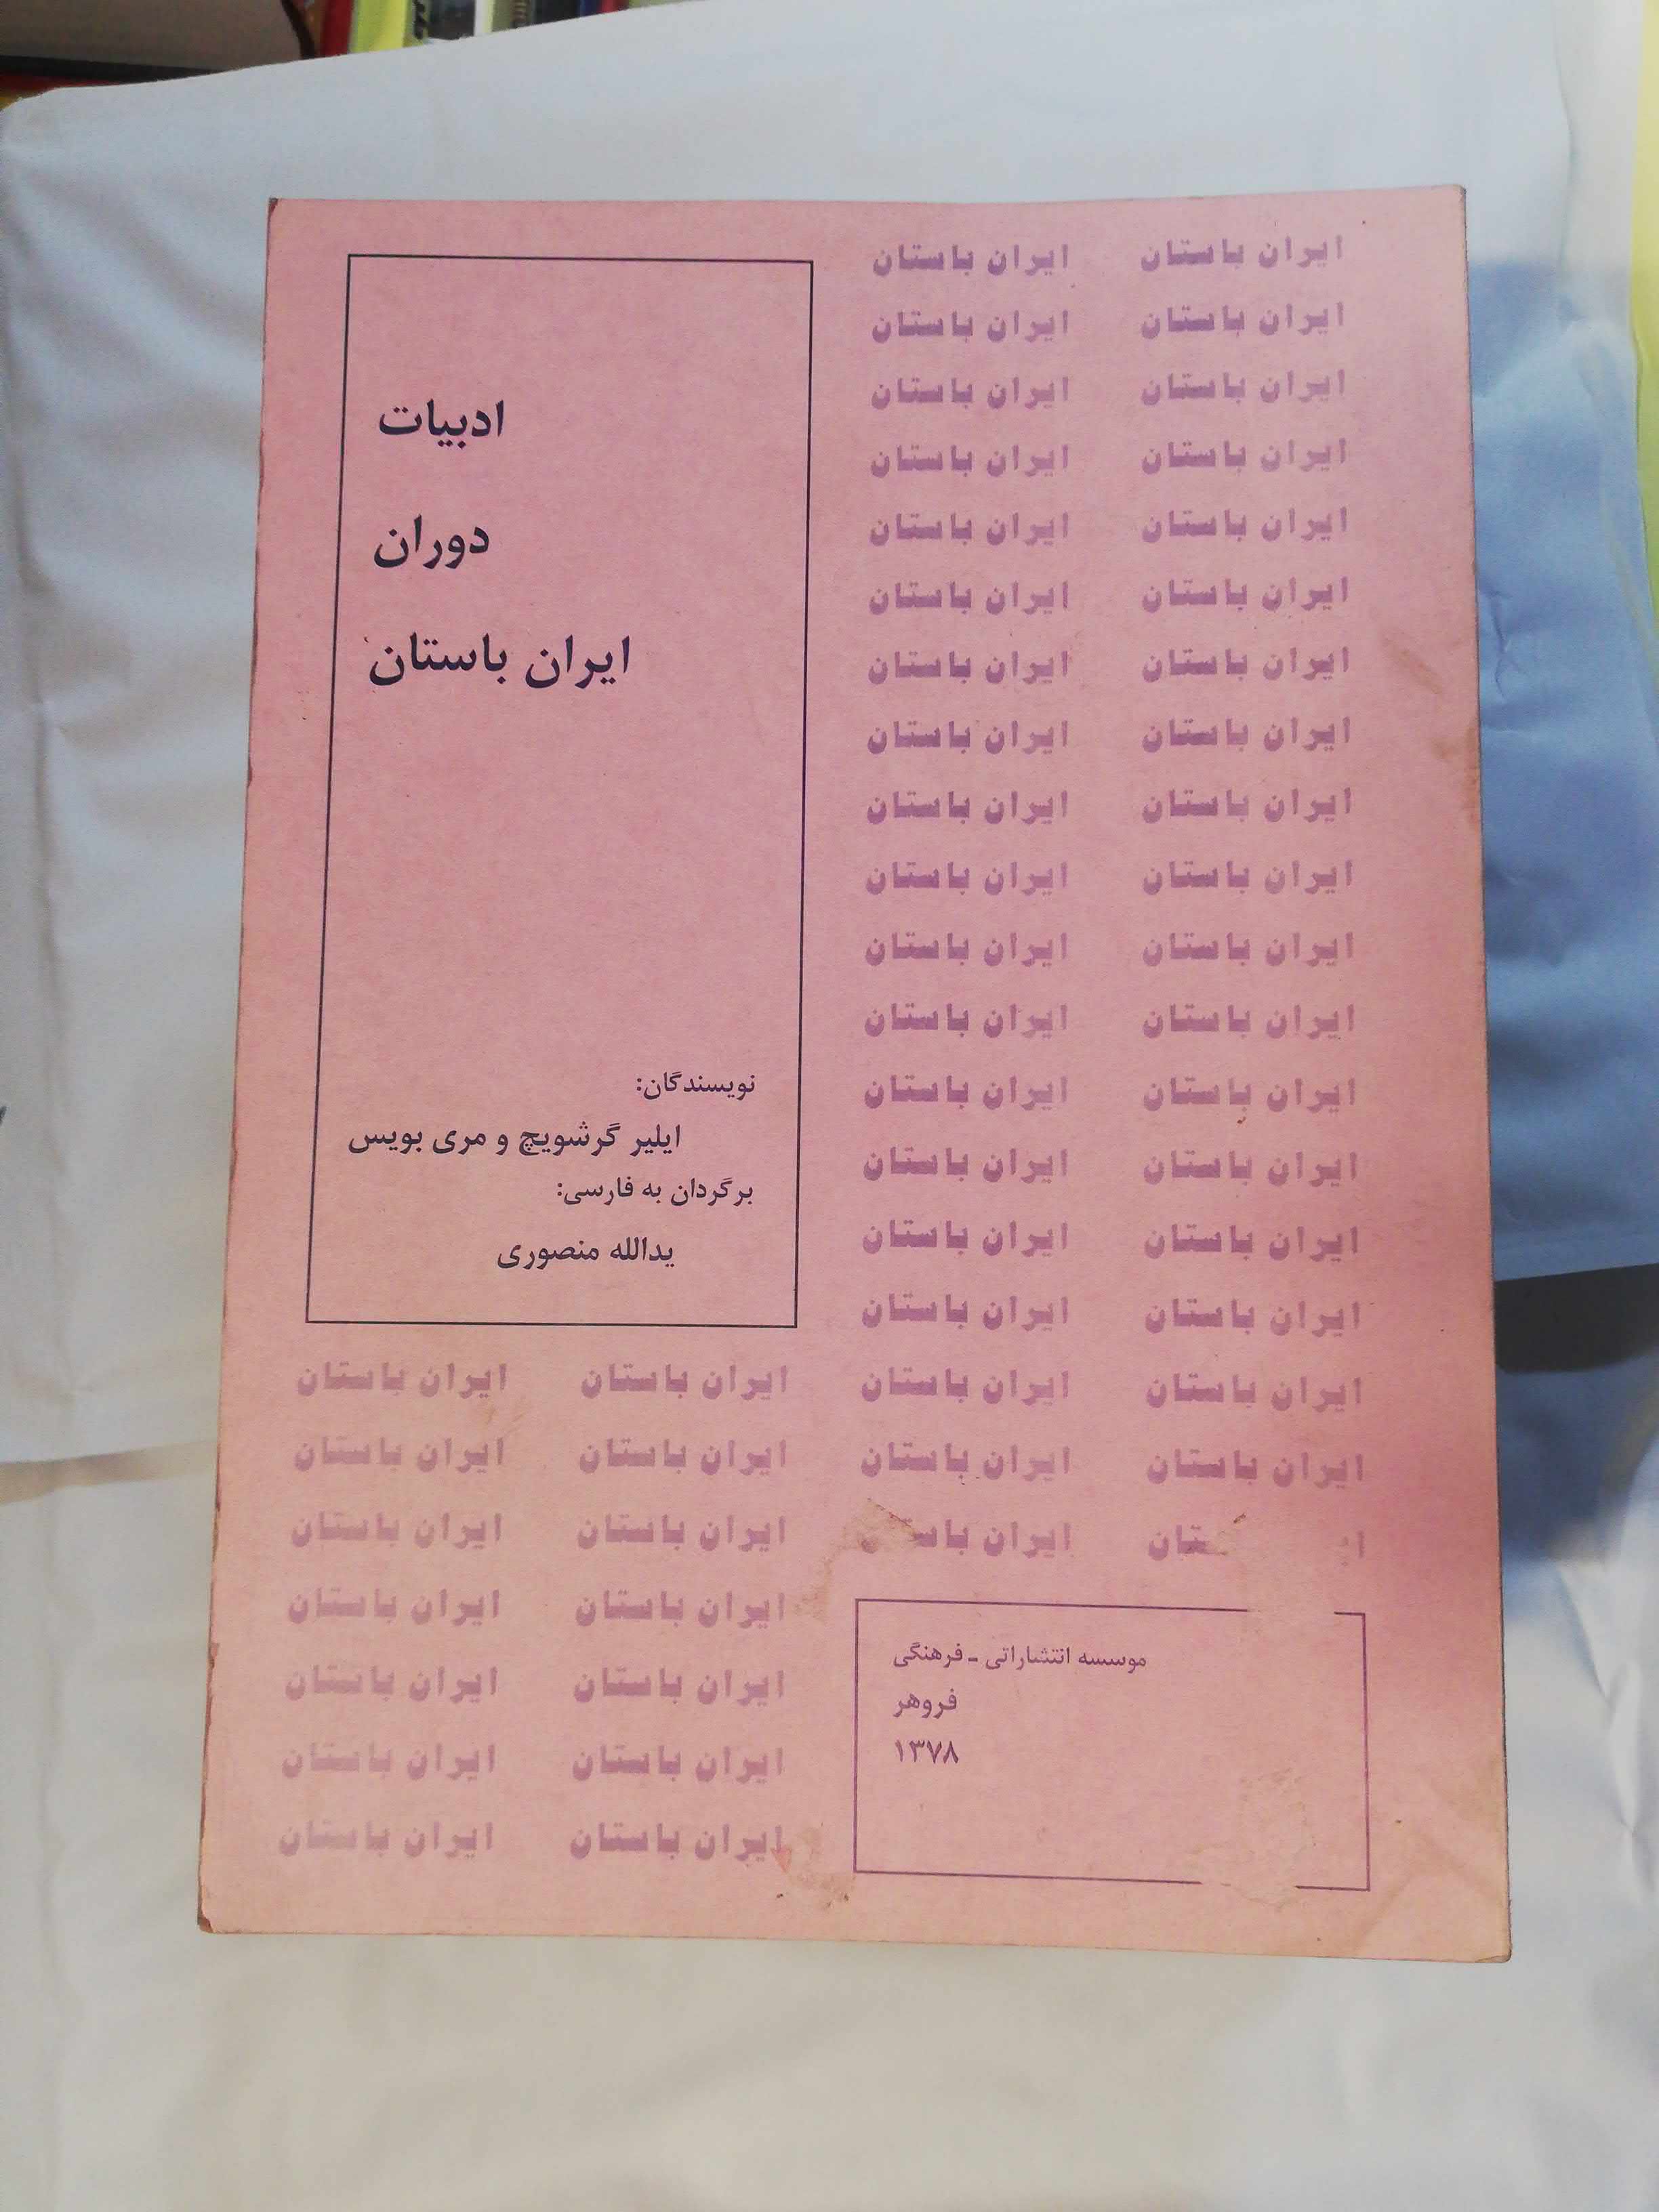 ادبیات
دوران
ایران باستان
نویسندگان:
ایلیر گرشویچ و مری بویس
برگردان به فارسی:
یدالله منصوری
ایران باستان ایران باستان
ایران باستان ایران باستان
ایران باستان ایران باستان
ایران باستان ایران باستان
ایران باستان ایران باستان
ایران باستان ایران باستان
ایران باستان ایران باستان
ایران باستان ایران باستان
ایران باستان ایران باستان
ایران باستان ایران باستان
ایران باستان ایران باستان
ایران باستان ایران باستان
ایران باستان ایران باستان
ایران باستان ایران باستان
ایران باستان ایران باستان
ایران باستان ایران باستان
ایران باستان ایران باستان ایران باستان ایران باستان
ایران باستان ایران باستان ایران باستان ایران باستان
ایران ایران باستان ایران باستان
ایران باستان ایران باستان
ایران باستان ایران باستان
ایران باستان ایران باستان
ایران باستان ایران باستان
موسسه انتشاراتی - فرهنگی
فروهر
۱۳۷۸